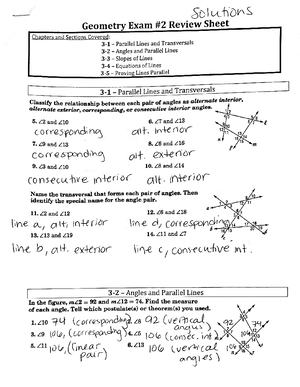 Solutions
Geometry Exam #2 Review Sheet
Chapters and Sections Covered:
3-1 – Parallel Lines and Transversals
3-2 – Angles and Parallel Lines
3-3 – Slopes of Lines
3-4 – Equations of Lines
3-5 – Proving Lines Parallel
3-1 – Parallel Lines and Transversals
Classify the relationship between each pair of angles as alternate interior,
alternate exterior, corresponding, or consecutive interior angles.
5. ∠2 and ∠10 6. ∠7 and ∠13
corresponding alt. interior
7. ∠9 and ∠13 8. ∠6 and ∠16
corresponding alt. exterior
9. ∠3 and ∠10 10. ∠8 and ∠14
consecutive interior alt. interior
Name the transversal that forms each pair of angles. Then
identify the special name for the angle pair.
11. ∠2 and ∠12 12. ∠6 and ∠18
line a, alt. interior line d, corresponding
13. ∠13 and ∠19 14. ∠11 and ∠7
line b, alt. exterior line c, consecutive int.
3-2 – Angles and Parallel Lines
In the figure, m∠2 = 92 and m∠12 = 74. Find the measure
of each angle. Tell which postulate(s) or theorem(s) you used.
1. ∠10 74 (corresponding) 92 (vertical
angles)
∠9 106, (corresponding) 106 (consec. int.
5. ∠11 106, (linear 6. ∠13 106 (vertical
pair) angles)